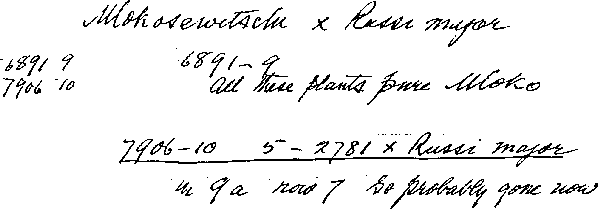 Mlokosewitschi x Russi major
6891 9 6891-9
7906 10 All these plants pure Mloko
7906-10 5-2781 x Russi major
in 9a row 7 So probably gone now